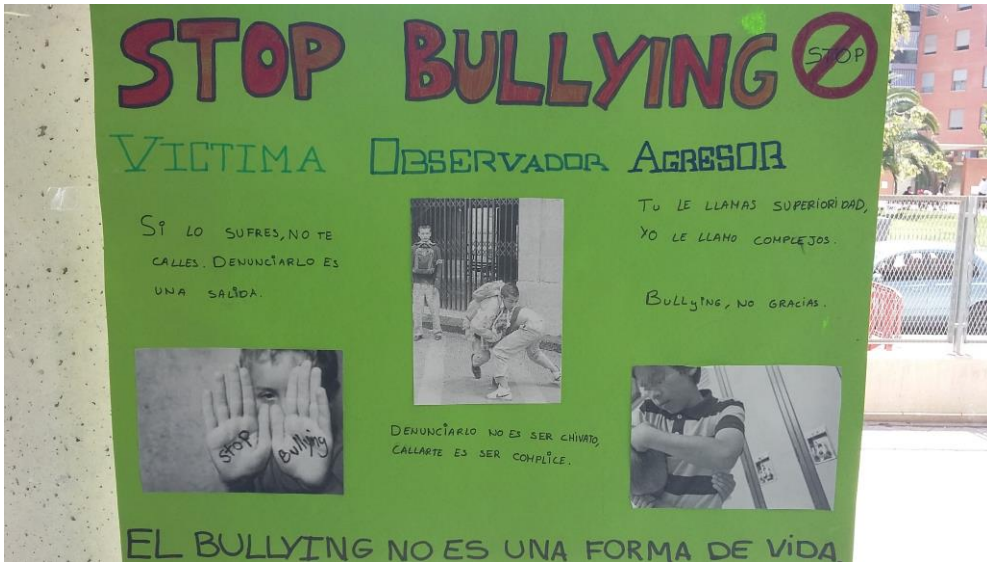 STOP BULLYING
STOP
VICTIMA
SI LO SUFRES, NO TE
CALLES. DENUNCIARLO ES
UNA SALIDA.
STOP
Bullying
OBSERVADOR
DENUNCIARLO NO ES SER CHIVATO,
CALLARTE ES SER COMPLICE.
AGRESOR
TU LE LLAMAS SUPERIORIDAD,
YO LE LLAMO COMPLEJOS.
BULLYING, NO GRACIAS.
EL BULLYING NO ES UNA FORMA DE VIDA